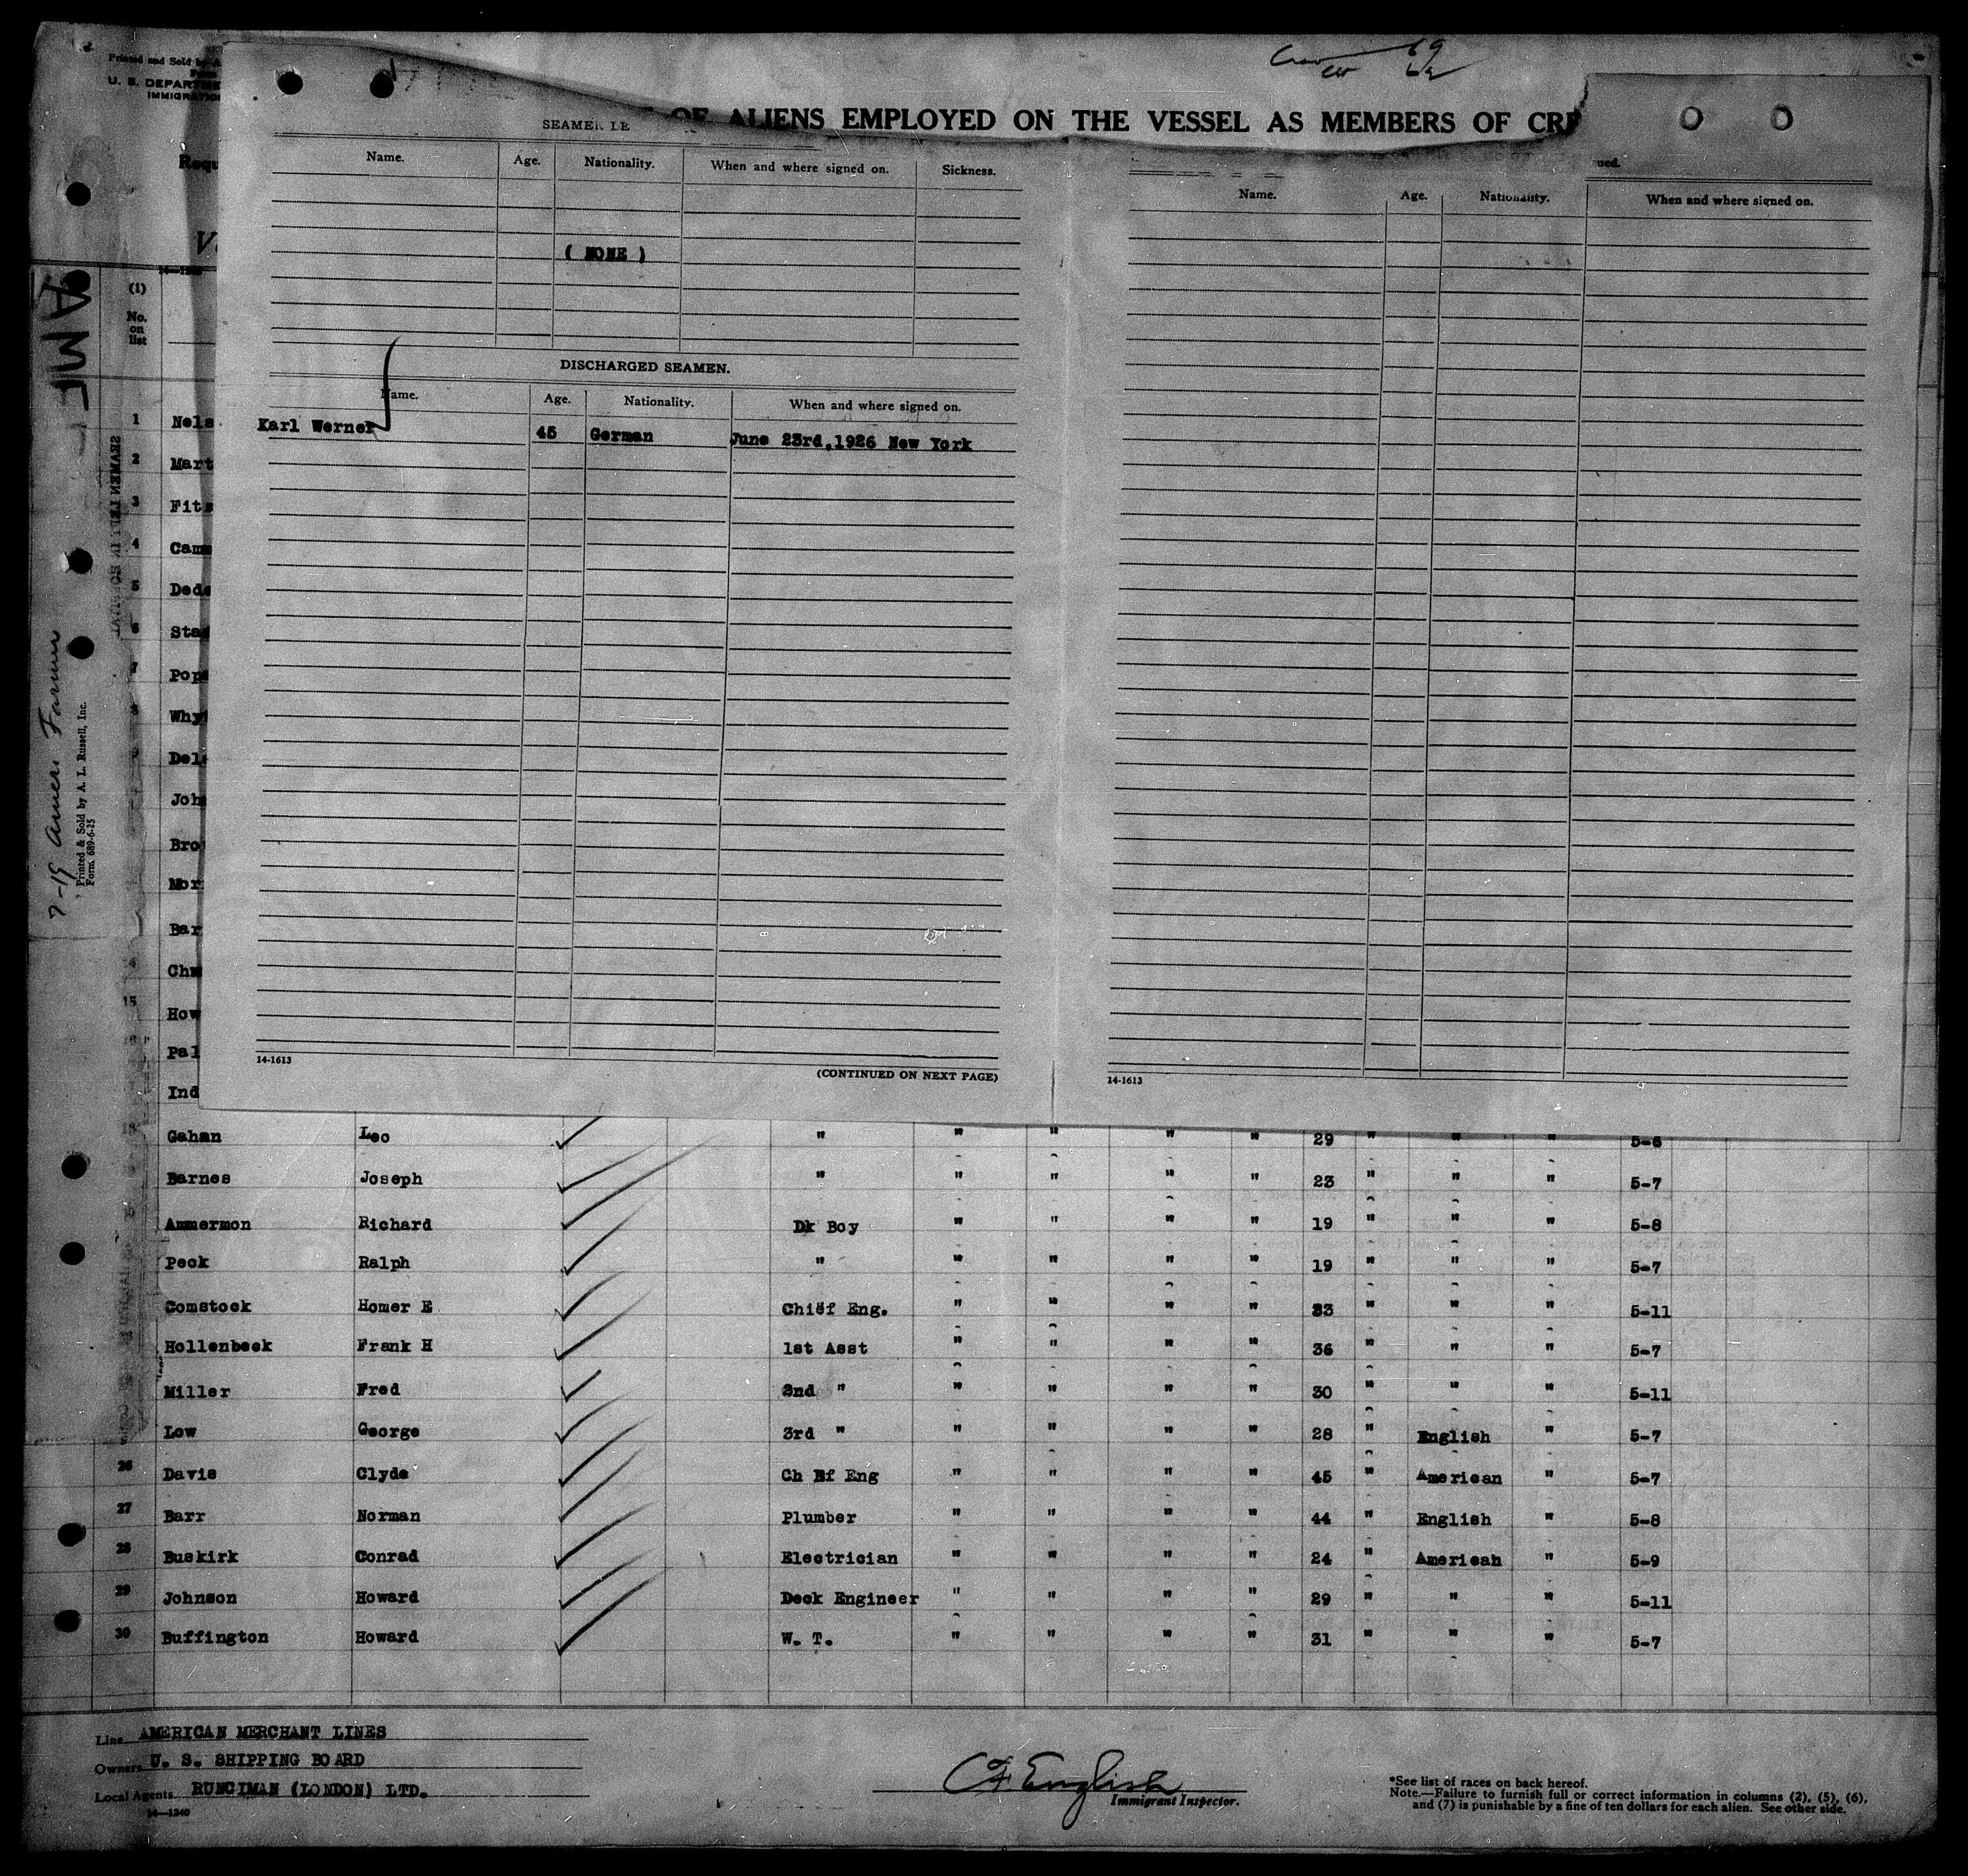 Printed and Sold by A
Form
U. S. DEPARTME
IMMIGRATIO
Crew 69
OF ALIENS EMPLOYED ON THE VESSEL AS MEMBERS OF CRE
Requ
(1)
No.
on
list
Name. Age. Nationality. When and where signed on. Sickness.
( NONE )
DISCHARGED SEAMEN.
Name. Age. Nationality. When and where signed on.
Karl Werner 45 German June 23rd,1926 New York
14-1613
(CONTINUED ON NEXT PAGE)
ued.
Name. Age. Nationality. When and where signed on.
14-1613
AME
7-19 Amer. Farmer
Printed & Sold by A. L. Russell, Inc.
Form 689-6-25
SEAMEN LEFT IN HOSPITAL
1 Nels
2 Mart
3 Fits
4 Cam
5 Dede
6 Sta
7 Pop
8 Why
Del
Joh
Bro
Mor
Bar
4 Chr
15 How
Pal
Ind
18 Gahan Leo " " " " " 29 " " " 5-6
Barnes Joseph " " " " " 23 " " " 5-7
Ammermon Richard Dk Boy " " " " 19 " " " 5-8
Peck Ralph " " " " " 19 " " " 5-7
Comstock Homer E Chief Eng. " " " " 33 " " " 5-11
Hollenbeck Frank H 1st Asst " " " " 36 " " " 5-7
Miller Fred 2nd " " " " " 30 " " " 5-11
Low George 3rd " " " " " 28 " English " 5-7
26 Davis Clyde Ch Rf Eng " " " " 45 " American " 5-7
27 Barr Norman Plumber " " " " 44 " English " 5-8
28 Buskirk Conrad Electrician " " " " 24 " American " 5-9
29 Johnson Howard Deck Engineer " " " " 29 " " " 5-11
30 Buffington Howard W. T. " " " " 31 " " " 5-7
Line AMERICAN MERCHANT LINES
Owners U. S. SHIPPING BOARD
Local Agents RUNCIMAN (LONDON) LTD.
14-1240
CF English
Immigrant Inspector.
*See list of races on back hereof.
Note.—Failure to furnish full or correct information in columns (2), (5), (6),
and (7) is punishable by a fine of ten dollars for each alien. See other side.